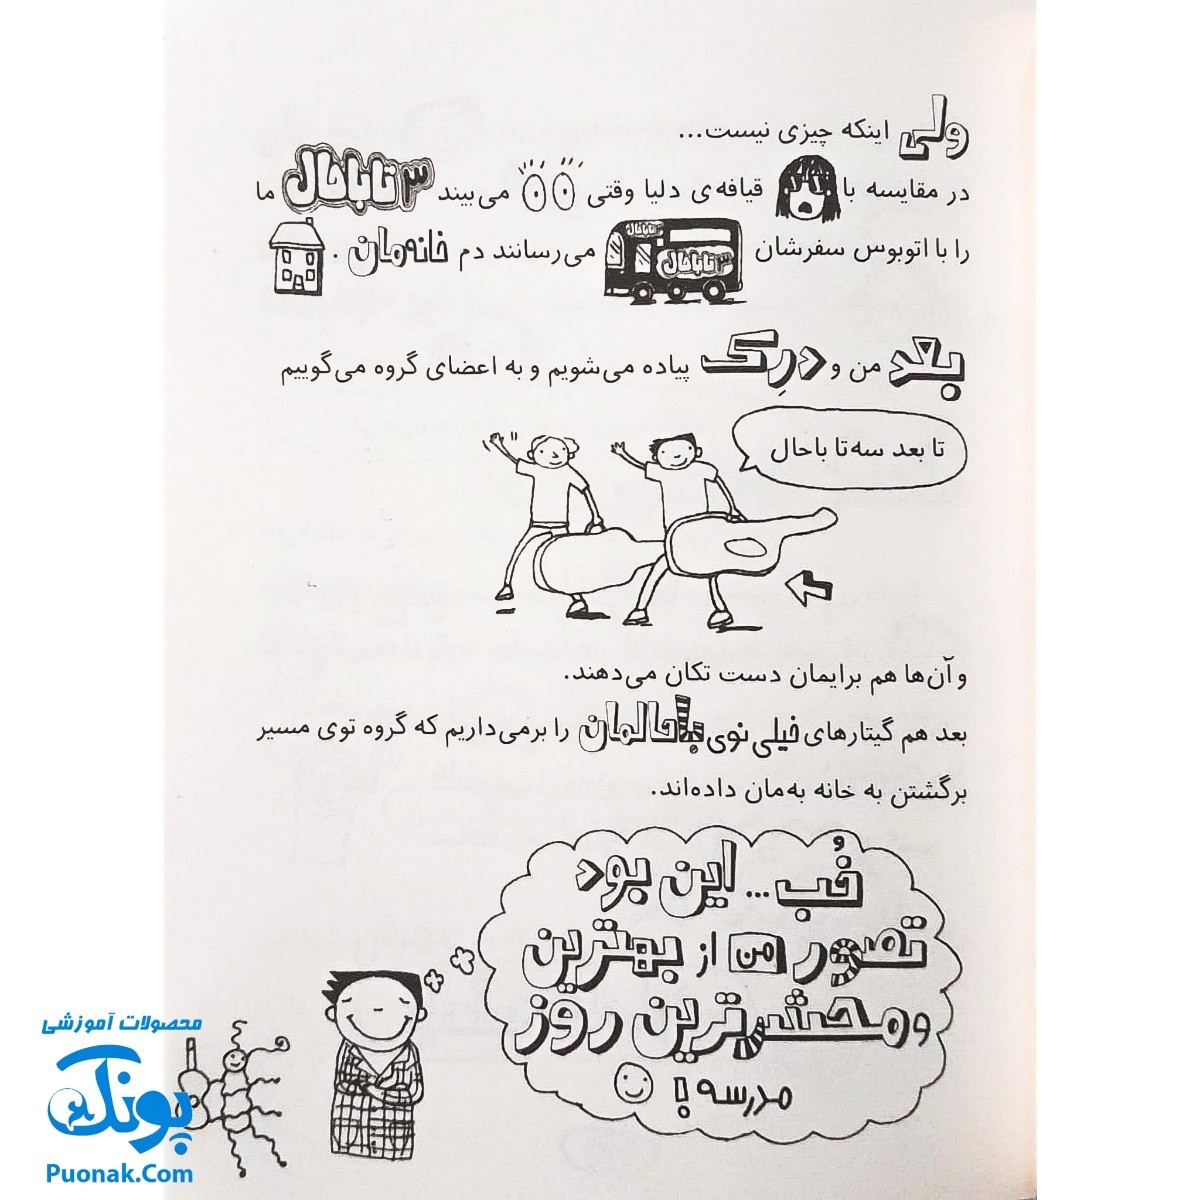 ولی اینکه چیزی نیست...
در مقایسه با قیافه‌ی دلیا وقتی می‌بیند ۳ تا باحال ما
را با اتوبوس سفرشان ۳ تا باحال ۳ تا باحال می‌رسانند دم خانه‌مان.
بعد من و درِک پیاده می‌شویم و به اعضای گروه می‌گوییم
تا بعد سه‌تا باحال
و آن‌ها هم برایمان دست تکان می‌دهند.
بعد هم گیتارهای خیلی نوی باحالمان را برمی‌داریم که گروه توی مسیر
برگشتن به خانه به‌مان داده‌اند.
خُب... این بود
تصور من از بهترین
و محشرترین روز
مدرسه!
محصولات آموزشی
پونک
Puonak.Com